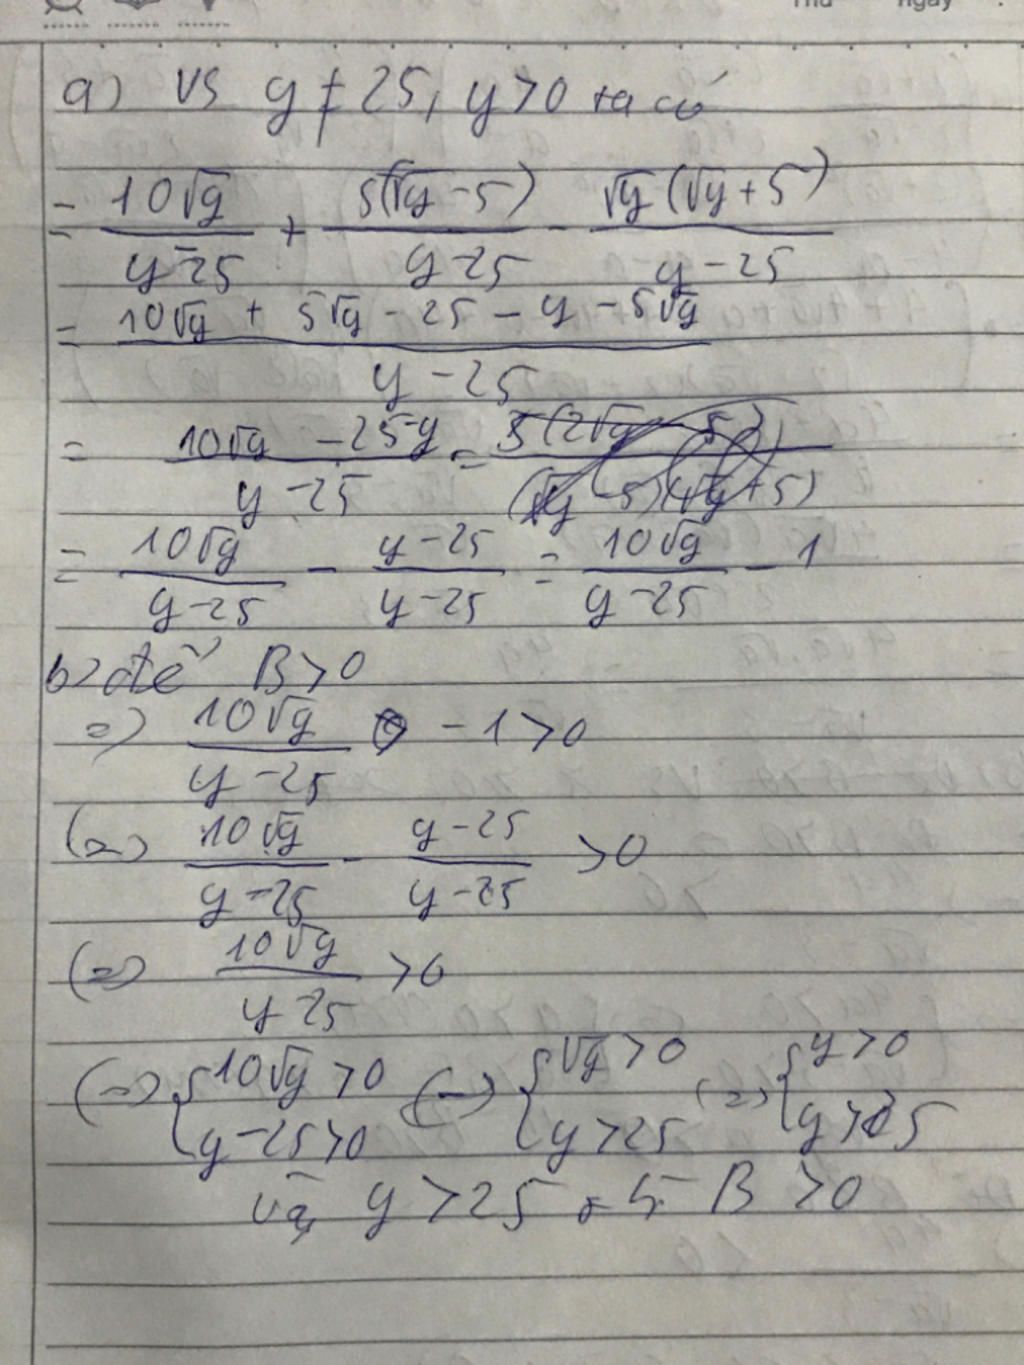 Thứ ngày
a) vs y ≠ 25, y > 0 ta có
= 10√y / (y - 25) + 5(√y - 5) / (y - 25) - √y(√y + 5) / (y - 25)
= (10√y + 5√y - 25 - y - 5√y) / (y - 25)
= (10√y - 25 - y) / (y - 25) =
= 10√y / (y - 25) - (y - 25) / (y - 25) = 10√y / (y - 25) - 1
b) để B > 0
=) 10√y / (y - 25) - 1 > 0
(=) 10√y / (y - 25) - (y - 25) / (y - 25) > 0
(=) 10√y / (y - 25) > 0
(=) { 10√y > 0 ; y - 25 > 0 (=) { √y > 0 ; y > 25 (=) { y > 0 ; y > 25
vậy y > 25 B > 0